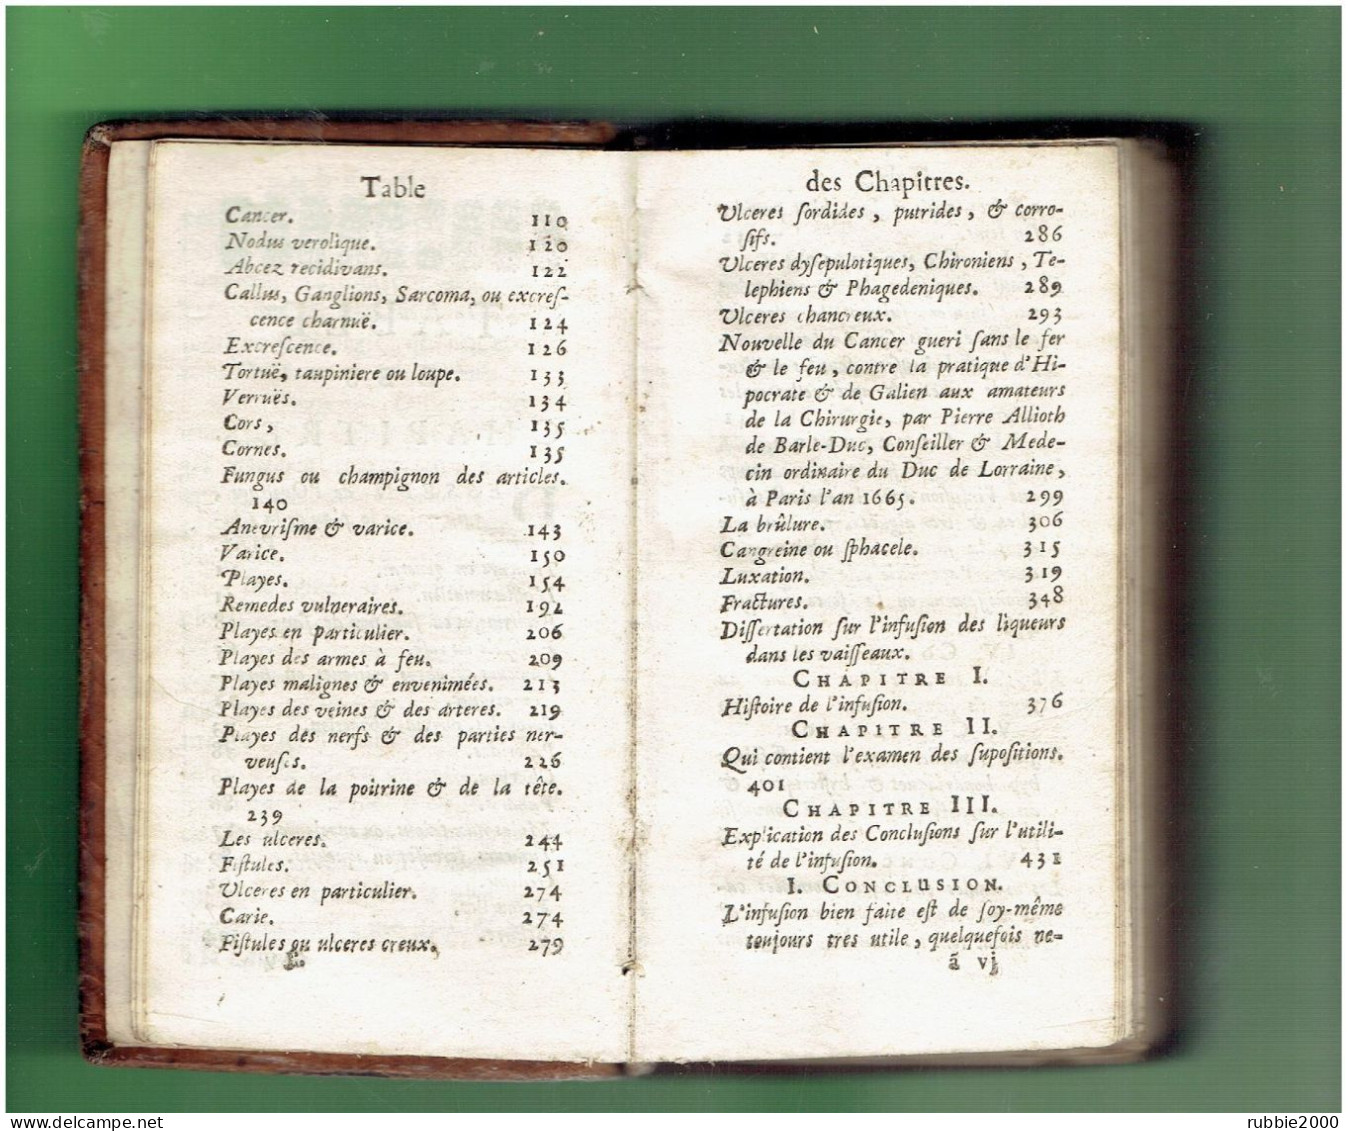 Table
Cancer. 110
Nodus verolique. 120
Abcez recidivans. 122
Callus, Ganglions, Sarcoma, ou excreſ-
cence charnuë. 124
Excreſcence. 126
Tortuë, taupiniere ou loupe. 133
Verruës. 134
Cors, 135
Cornes. 135
Fungus ou champignon des articles.
140
Anevriſme & varice. 143
Varice. 150
Playes. 154
Remedes vulneraires. 192
Playes en particulier. 206
Playes des armes à feu. 209
Playes malignes & envenimées. 213
Playes des veines & des arteres. 219
Playes des nerfs & des parties ner-
veuſes. 226
Playes de la poitrine & de la tête.
239
Les ulceres. 244
Fiſtules. 251
Ulceres en particulier. 274
Carie. 274
Fiſtules ou ulceres creux. 279
des Chapitres.
Ulceres ſordides, putrides, & corro-
ſifs. 286
Ulceres dyſepulotiques, Chironiens, Te-
lephiens & Phagedeniques. 289
Ulceres chancreux. 293
Nouvelle du Cancer gueri ſans le fer
& le feu, contre la pratique d'Hi-
pocrate & de Galien aux amateurs
de la Chirurgie, par Pierre Allioth
de Barle-Duc, Conſeiller & Mede-
cin ordinaire du Duc de Lorraine,
à Paris l'an 1665. 299
La brûlure. 306
Cangreine ou ſphacele. 315
Luxation. 319
Fractures. 348
Diſſertation ſur l'infuſion des liqueurs
dans les vaiſſeaux.
CHAPITRE I.
Hiſtoire de l'infuſion. 376
CHAPITRE II.
Qui contient l'examen des ſupoſitions.
401
CHAPITRE III.
Explication des Concluſions ſur l'utili-
té de l'infuſion. 431
I. CONCLUSION.
L'infuſion bien faite eſt de ſoy-même
toujours tres utile, quelquefois ne-
ã vj
rubbie2000